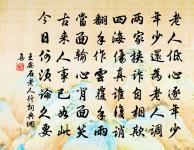 老人低心逐年少
年少還為老人調
兩家挾詐自相欺
四海傷真誰復誚
翻手作雲覆手雨
當面輸心背面笑
古來人事已如此
今日何須論久要
王安石老人行詞典網
集